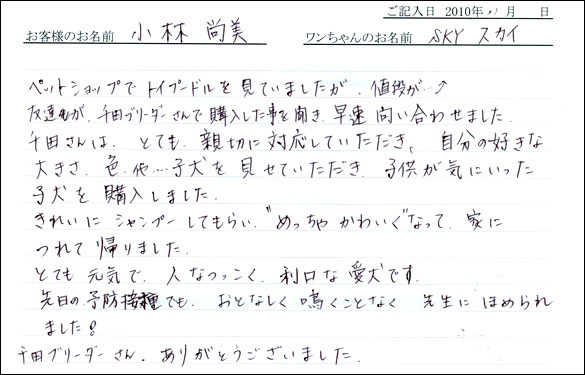 ご記入日 2010年 11月 日
お客様のお名前 小林 尚美 ワンちゃんのお名前 SKY スカイ
ペットショップで トイプードルを 見ていましたが、値段が…↗
友達もが、千田ブリーダーさんで購入した事を聞き、早速 問い合わせました.
千田さんは、とても、親切に対応していただき、自分の好きな
大きさ、色、他…子犬を 見せていただき、子供が気にいった
子犬を 購入しました.
きれいに シャンプー してもらい、"めっちゃ かわいぐ"なって、家に
つれて 帰りました.
とても 元気で、人なつっこく、利口な 愛犬です.
先日の予防接種でも、おとなしく 鳴くことなく 先生に ほめられ
ました!
千田ブリーダーさん、ありがとうございました.